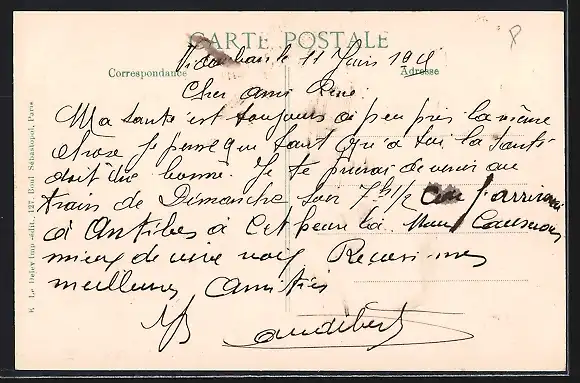 CARTE POSTALE
Vidauban le 11 Juin 19
Correspondance
Adresse
Cher ami René
Ma santé est toujours a peu près la même
chose je pense que tant qu'a toi la santé
doit être bonne. Je te prierai de venir au
train de Dimanche soir 7h 1/2 car j'arriverai
à Antibes à cet heure la. Nous causerons
mieux de vive voix Recois mes
meilleures Amitiés
audibert
6 Le Deley Imp.-édit., 127, Boul. Sébastopol, Paris